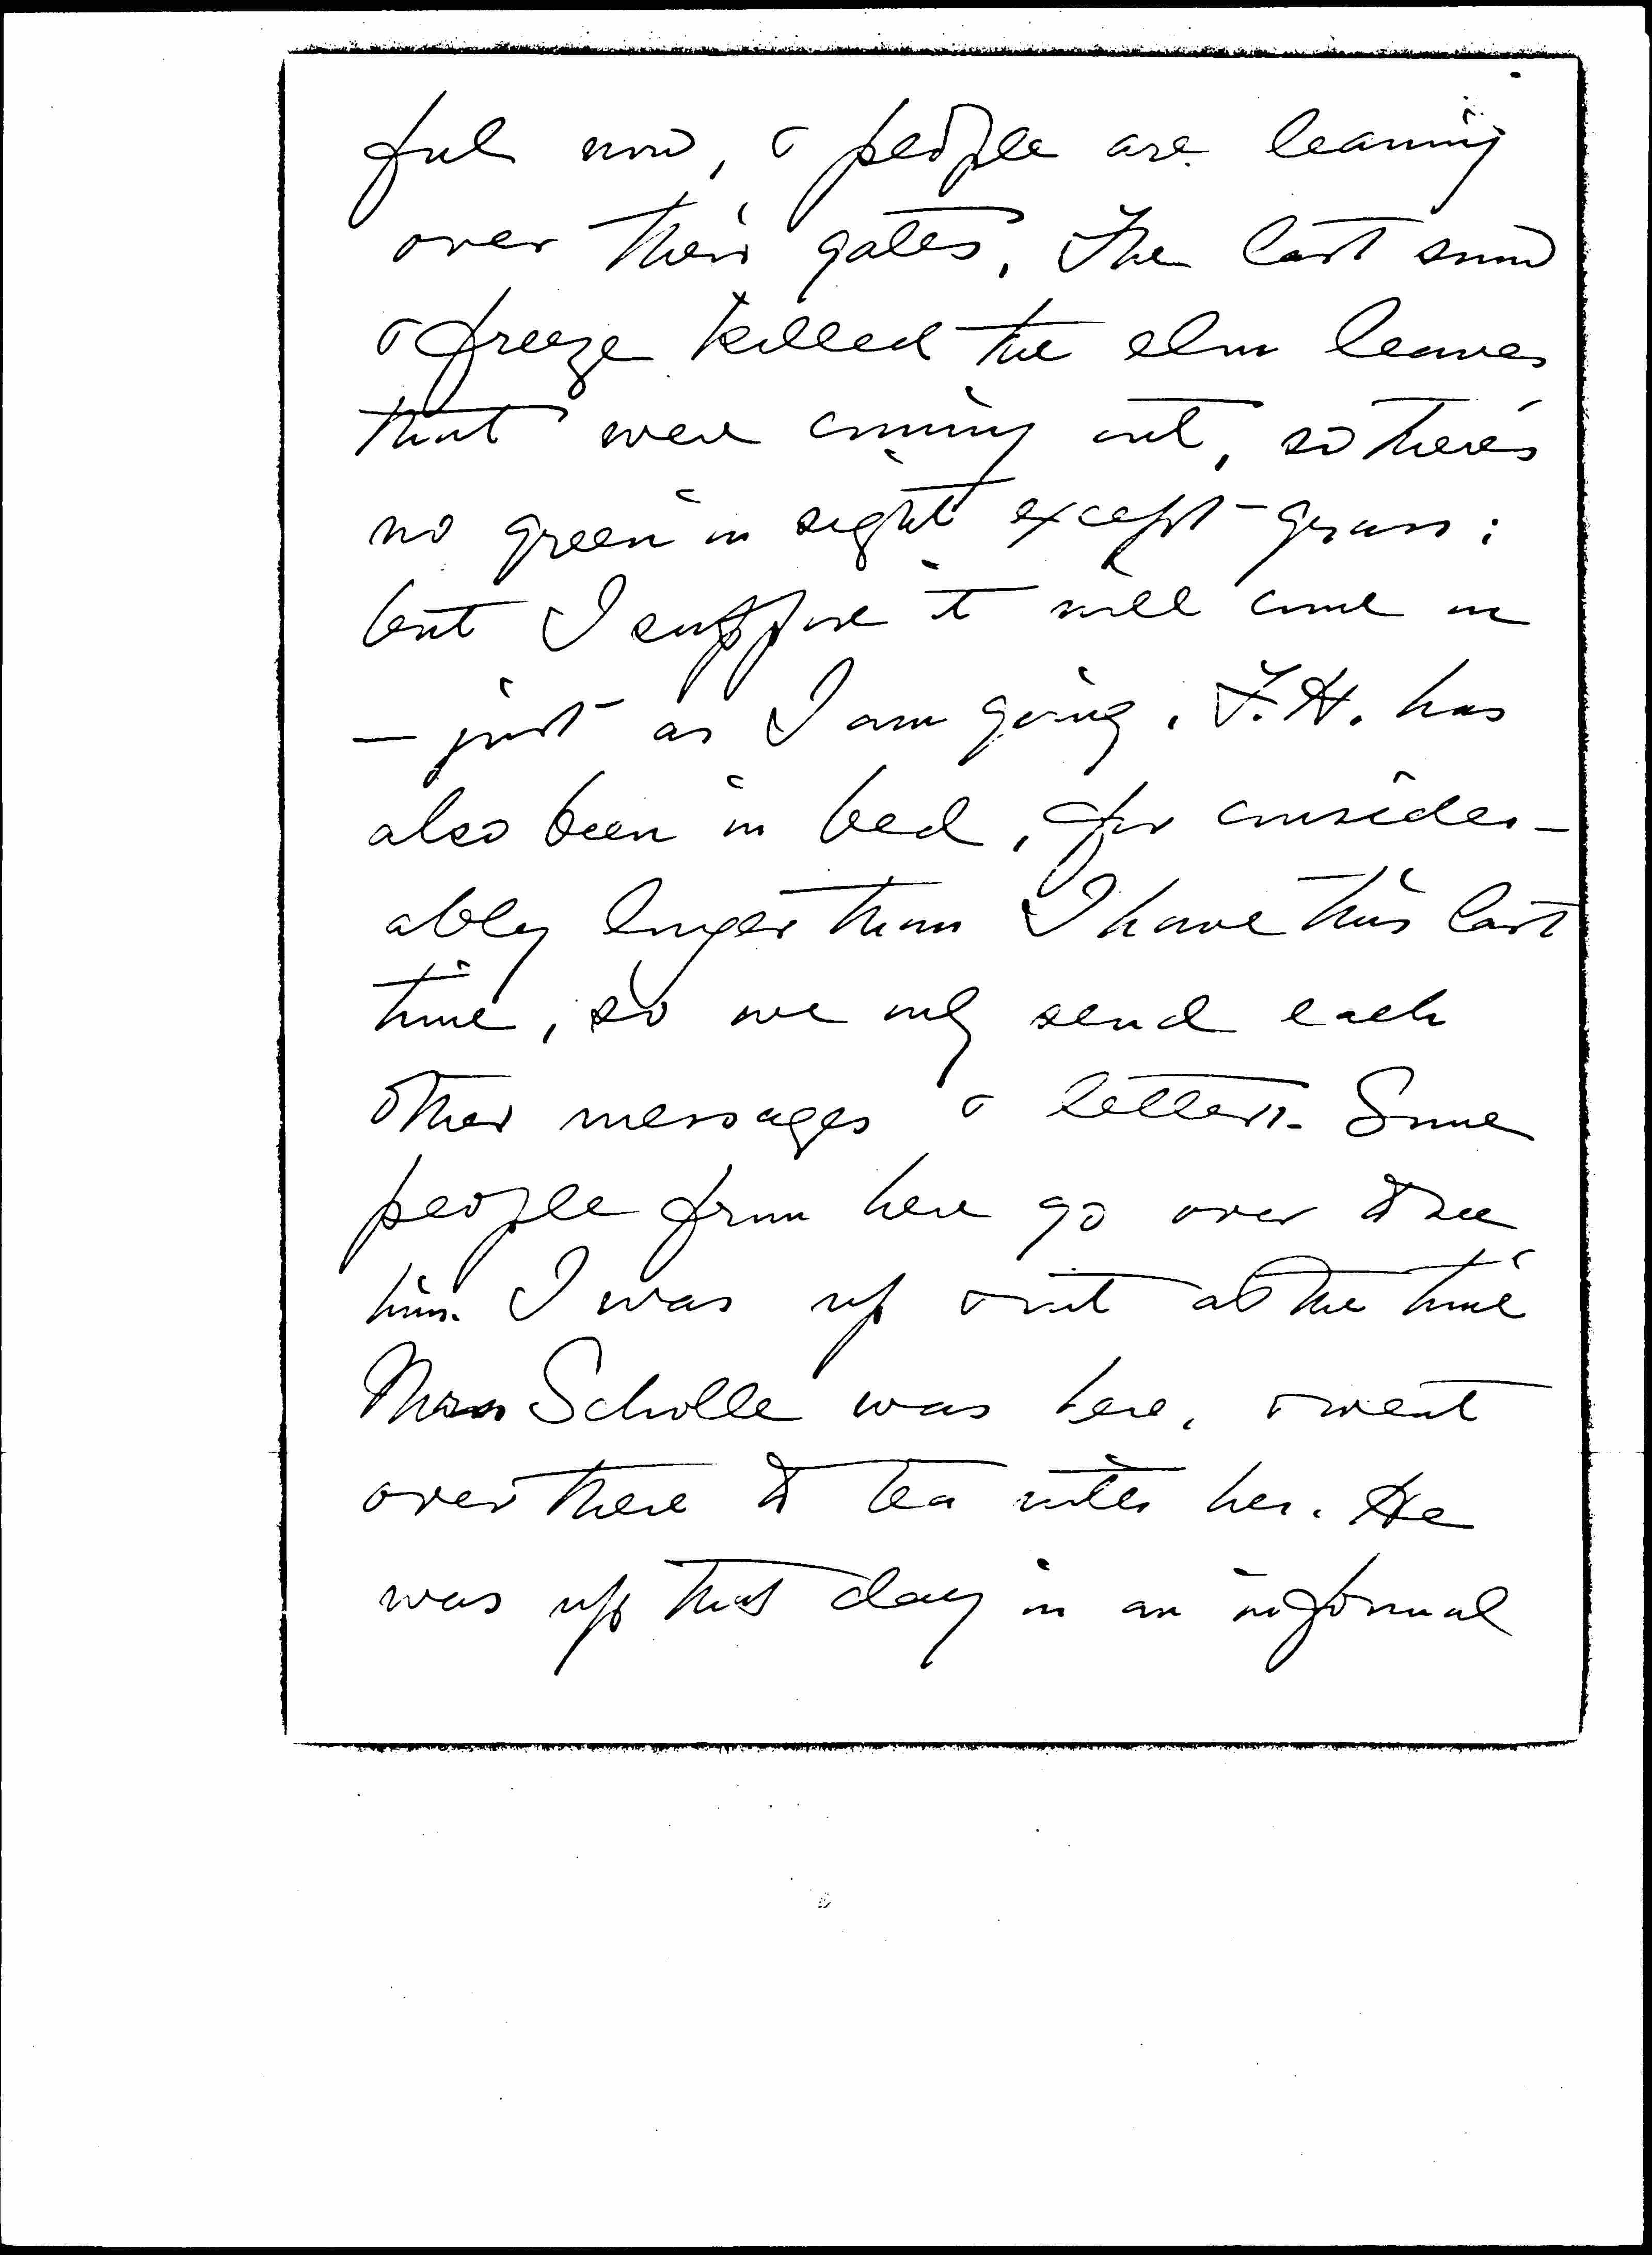 ful now, & people are leaning
over their gates. The last snow
& freeze killed the elm leaves
that were coming out, so there's
no green in sight except grass;
but I suppose it will come on
— just as I am going. F.H. has
also been in bed, for consider-
ably longer than I have this last
time, so we only send each
other messages & letters. Some
people from here go over to see
him. I was up & out at the time
Scholle was here, & went
over there to tea with her. He
was up that day in an informal